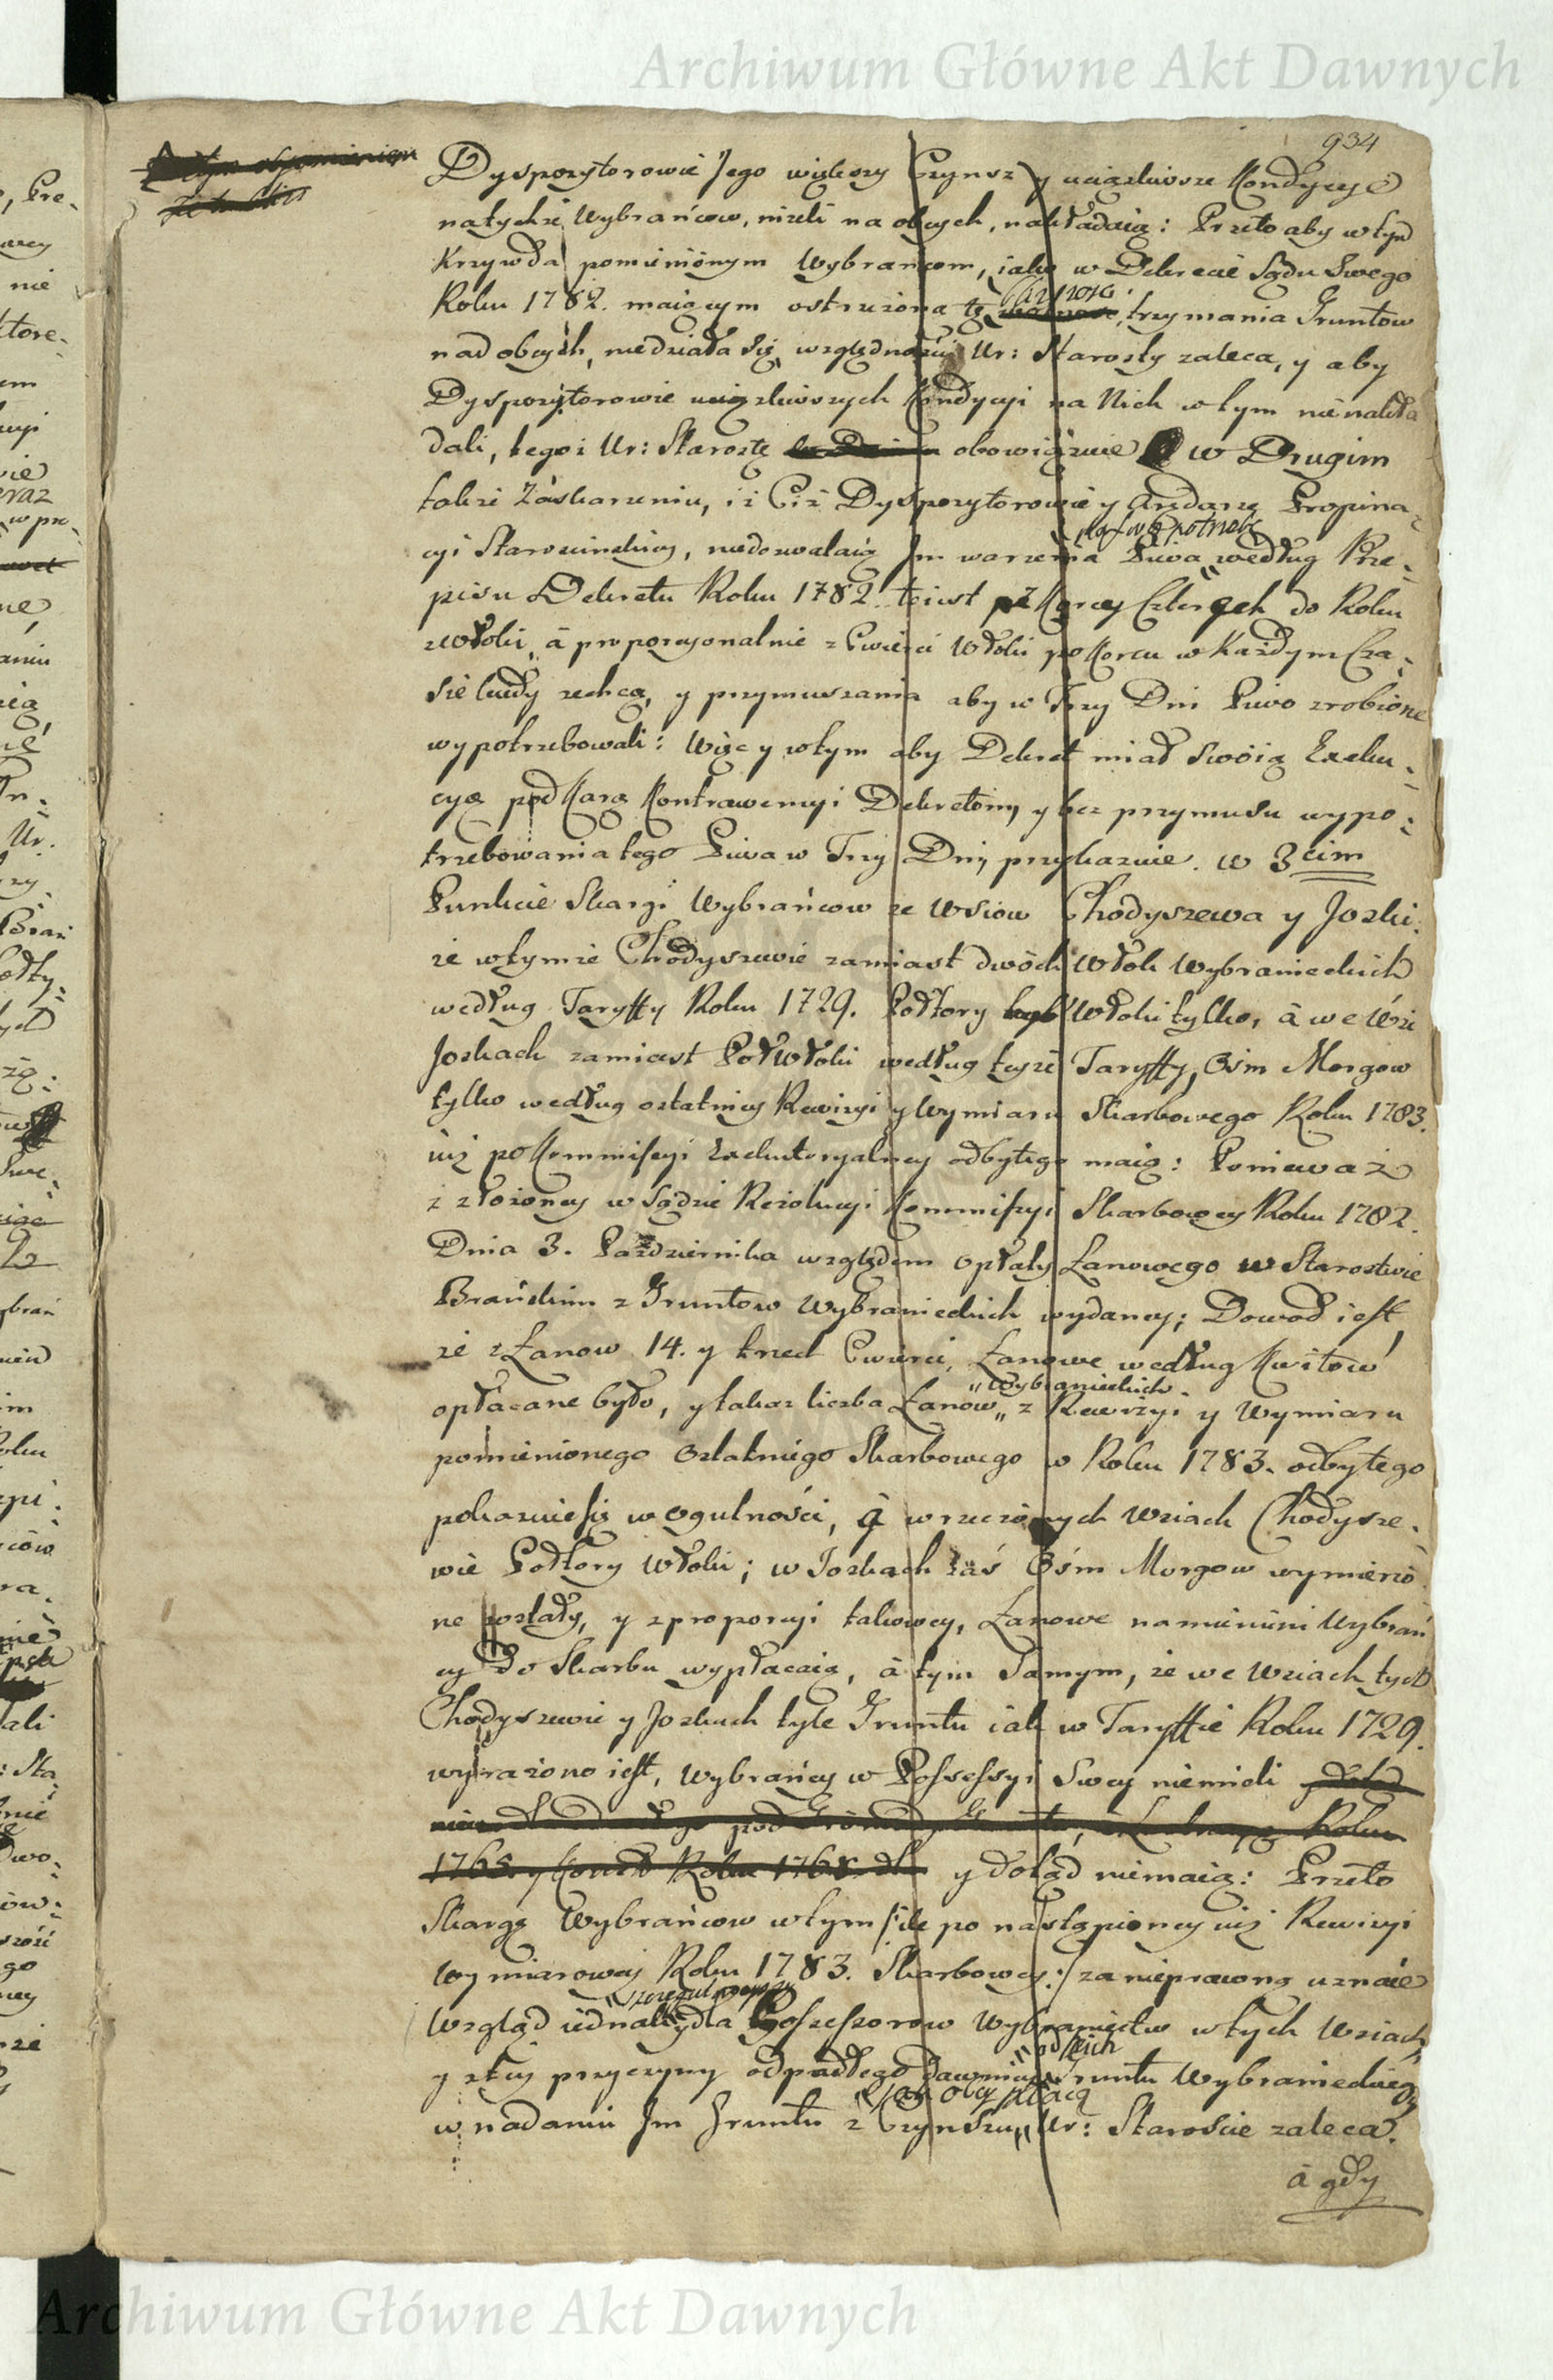 Archiwum Główne Akt Dawnych
934
Dysporytorowie Jego większy Czynsz y uciązliwsze Kondycye
natychże Wybrańcow, niżeli na obcych, nakładaią: Przeto aby wtym
Krzywda pomienionym Wybrańcom, iako w Dekrecie Sądu Swego
Roku 1782. maiącym ostrzeżoną tę trzymania Gruntow
nad obcych, niedziała się, względności Ur: Starosty zaleca, y aby
Dysporytorowie uciązliwszych Kondycyi na Nich wtym nienakła
dali, tegoż Ur: Starostę obowiązuie w Drugim
także Zaskarzeniu, iż Ciż Dysporytorowie y Arędarze Propina-
cyi Starościnskiey, niedozwalaią Im warzenia Piwa według Prze-
na swą potrzebę
pisu Dekretu Roku 1782. toiest po Korcy Czterech do Roku
zwłoki, à proporcyonalnie z Cwierci Włoki po Korcu w Każdym Cza-
sie kiedy zechcą, y przymuszania aby w Trzy Dni Piwo zrobione
wypotrzebowali: Więc y wtym aby Dekret miał Swoią Exeku-
cyą pod Karą Kontrawencyi Dekretowey y bez przymusu wypo-
trzebowania tego Piwa w Trzy Dni, przykazuie. w 3cim
Punkcie Skargi Wybrańcow ze Wsiow Chodyszewa y Joski:
że wtymże Chodyszewie zamiast dwóch Włok Wybranieckich
według Taryffy Roku 1729. Połtory Włoki tylko, à we Wsi
Joskach zamiast Połwłoki według teyże Taryffy, Ośm Morgow
tylko według ostatniey Rewizyi y Wymiaru Skarbowego Roku 1783.
iuż po Kommissyi Exekutoryalney odbytego maią: Ponieważ
z złożoney w Sądzie Rezolucyi Kommissyi Skarbowey Roku 1782.
Dnia 3. Października względem opłaty Łanowego w Starostwie
Brańskim z Gruntow Wybranieckich wydaney; Dowod iest
że z Łanow 14. y trzech Cwierci, Łanowe według Kwitow
opłacane było, y takaż liczba Łanow „ z Rewizyi y Wymiaru
„Wybranieckich
pomienionego Ostatniego Skarbowego w Roku 1783. odbytego
pokazuie się w ogulności, à w rzeczonych Wsiach Chodysze-
wie Połtory Włoki; w Joskach zaś Ośm Morgow wymierzo
ne zostały, y z proporcyi takowey, Łanowe namienieni Wybrań
cy do Skarbu wypłacaią, à tym Samym, że we Wsiach tych
Chodyszewie y Joskach tyle Gruntu iak w Taryffie Roku 1729.
wyrażono iest, Wybrańcy w Possessyi Swey niemieli
y dotąd niemaią: Przeto
Skargę Wybrańcow wtym /:ile po nastąpioney iuż Rewizyi
Wymiarowey Roku 1783. Skarbowey:/ za nieprawną uznaie
Wzgląd iednak dla Possessorow Wybraniectw wtych Wsiach
y ztey przyczyny odpadłego dawniey Gruntu Wybranieckiego
„od Nich
w nadaniu Im Gruntu z Czynszu „ Ur: Staroście zaleca.
„iak obcy płacą
à gdy
Archiwum Główne Akt Dawnych